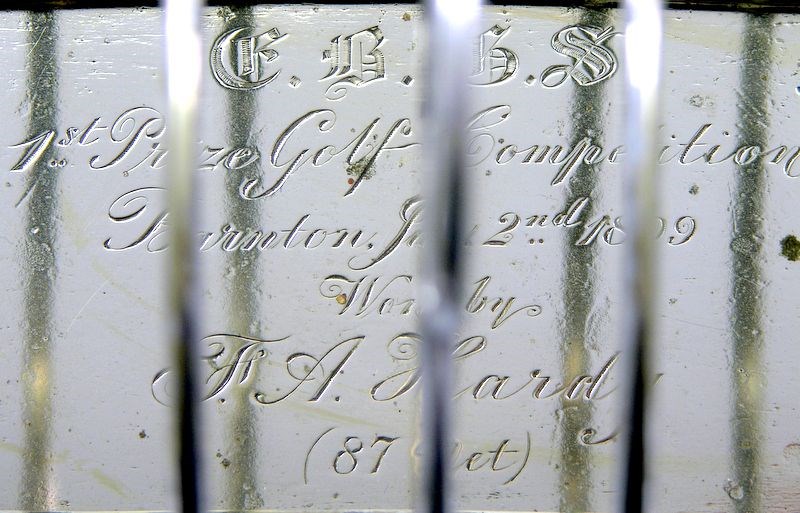 E. B. S
1st Prize Golf Competition
Barnton, 2nd
Won by
F. A. Hardy
(87 Net)